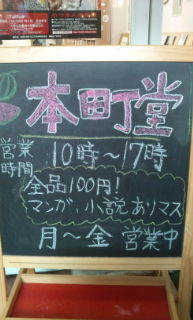 本町堂
営業時間 10時～17時
全品100円!
マンガ、小説 ありマス
月～金 営業中